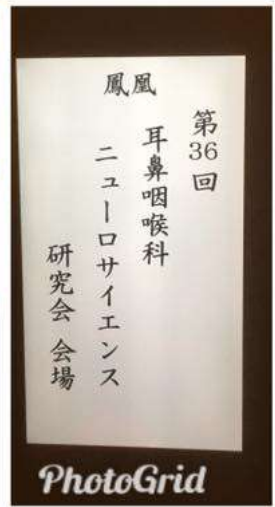 鳳凰
第36回
耳鼻咽喉科
ニューロサイエンス
研究会 会場
PhotoGrid